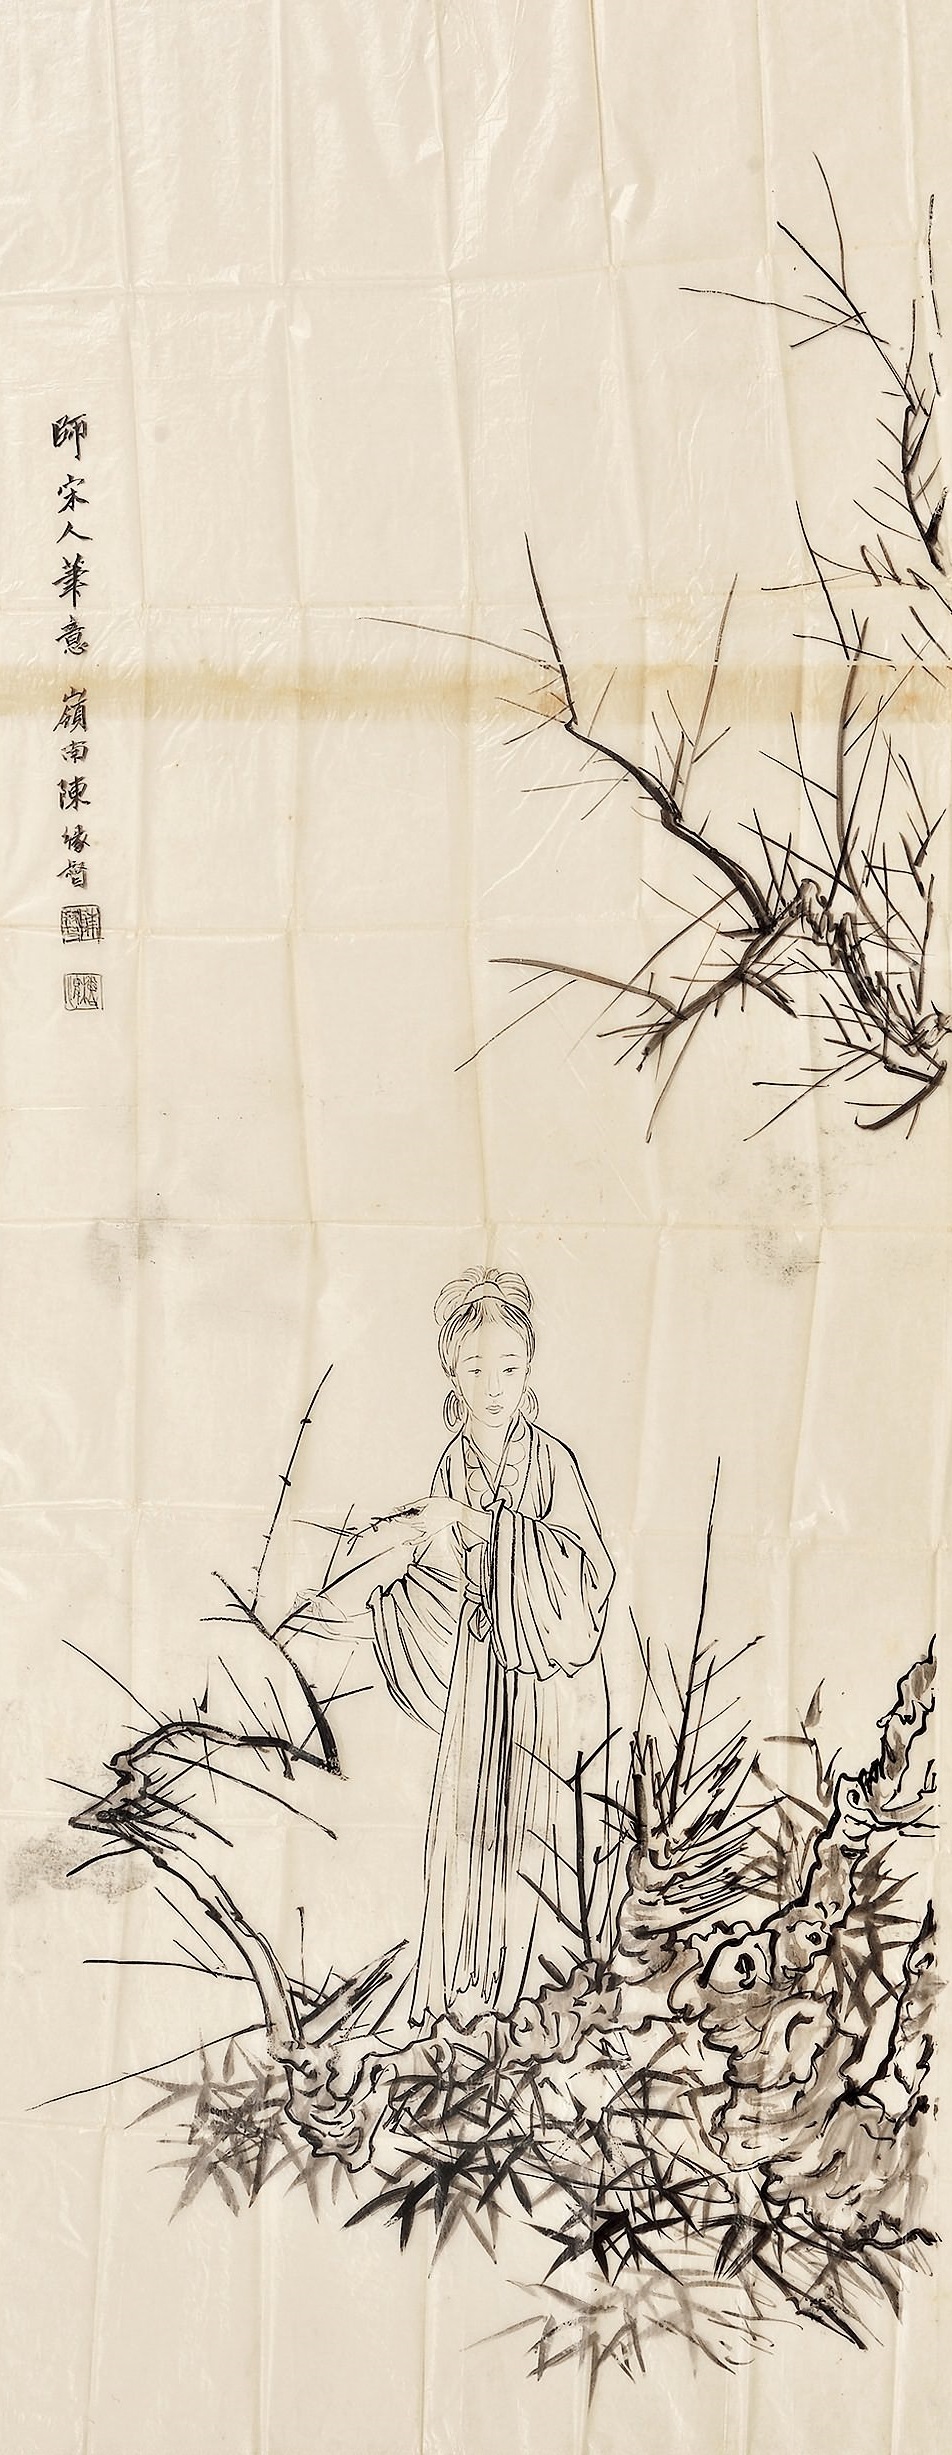 師宋人筆意 嶺南陳緣督